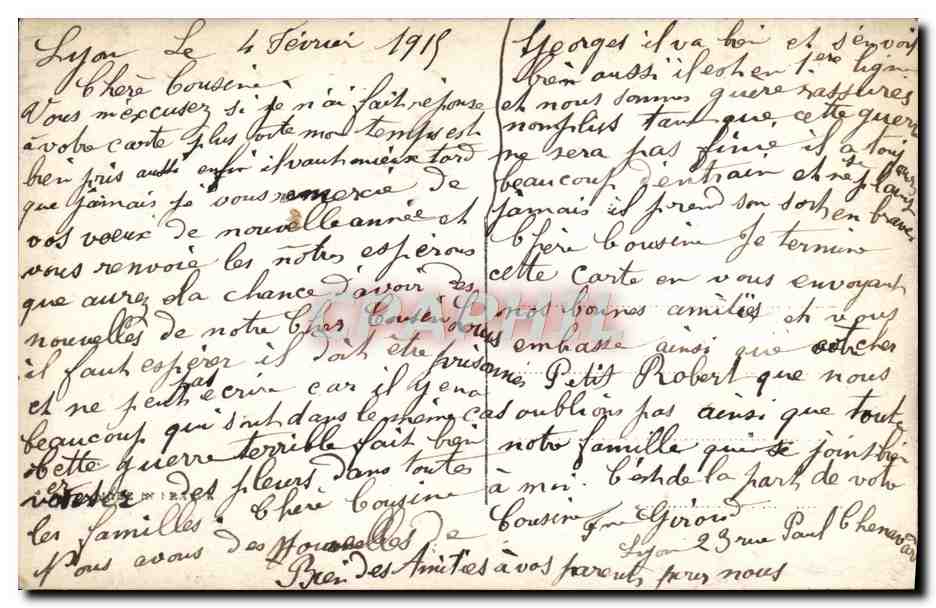 Lyon Le 4 Février 1915
Chère Cousine
Vous m'éxcusez si je n'ai fait réponse
à votre carte plus vite mon temps est
bien pris aussi enfin il vaut mieux tard
que jamais je vous remercie de
vos vœux de nouvelle année et
vous renvoie les nôtres espérons
que aurez la chance d'avoir des
nouvelles de notre Cher Cousin Louis
il faut espérer il doit être prisonnier
et ne peut pas écrire car il y en a
beaucoup qui sont dans le même cas
Cette guerre terrible fait bien
verser des pleurs dans toutes
les familles. Chère Cousine
Nous avons des Nouvelles de
Georges il va bien et s'en voit
bien aussi il est en 1ere ligne
et nous sommes guère rassurés
nomplus tant que cette guerre
ne sera pas finie il a toujours
beaucoup d'entrain et ne se plaint
jamais il prend son sort en brave
Chère Cousine Je termine
cette carte en vous envoyant
nos bonnes amitiés et vous
embasse ainsi que votre cher
Petit Robert que nous
oublions pas ainsi que toute
notre famille qui se joint bien
à moi. C'est de la part de votre
Cousine Giroud
Lyon 23 rue Paul Chenavard
Bien des Amitiés à vos parents pour nous
CPARAMA